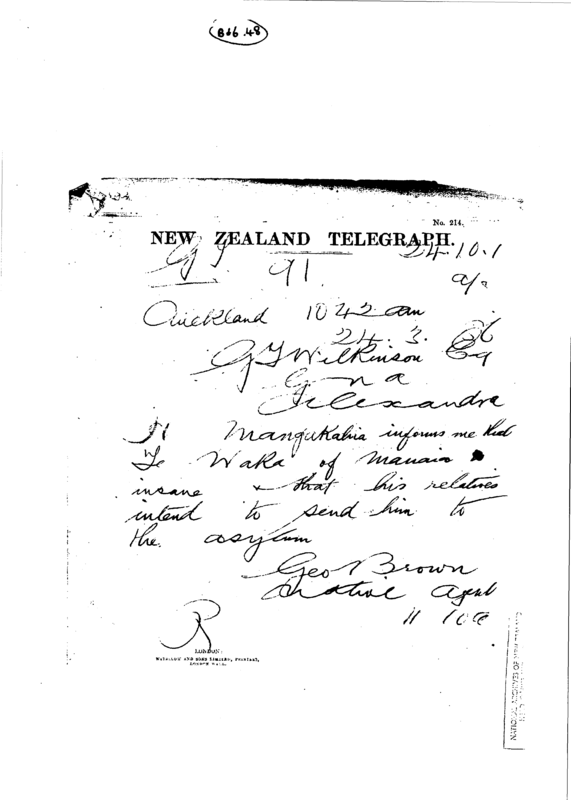 B86.48
No. 214.
NEW ZEALAND TELEGRAPH.
24.10.1
91
Auckland 1042 am
24.3.86
G T Wilkinson Esq
G n a
Alexandra
H Mangakahia informs me that
Te Waka of Manaia
insane & that his relatives
intend to send him to
the asylum
Geo Brown
Native Agent
11 10a
LONDON:
WATERLOW AND SONS LIMITED, PRINTERS,
LONDON WALL.
NATIONAL ARCHIVES OF NEW ZEALAND